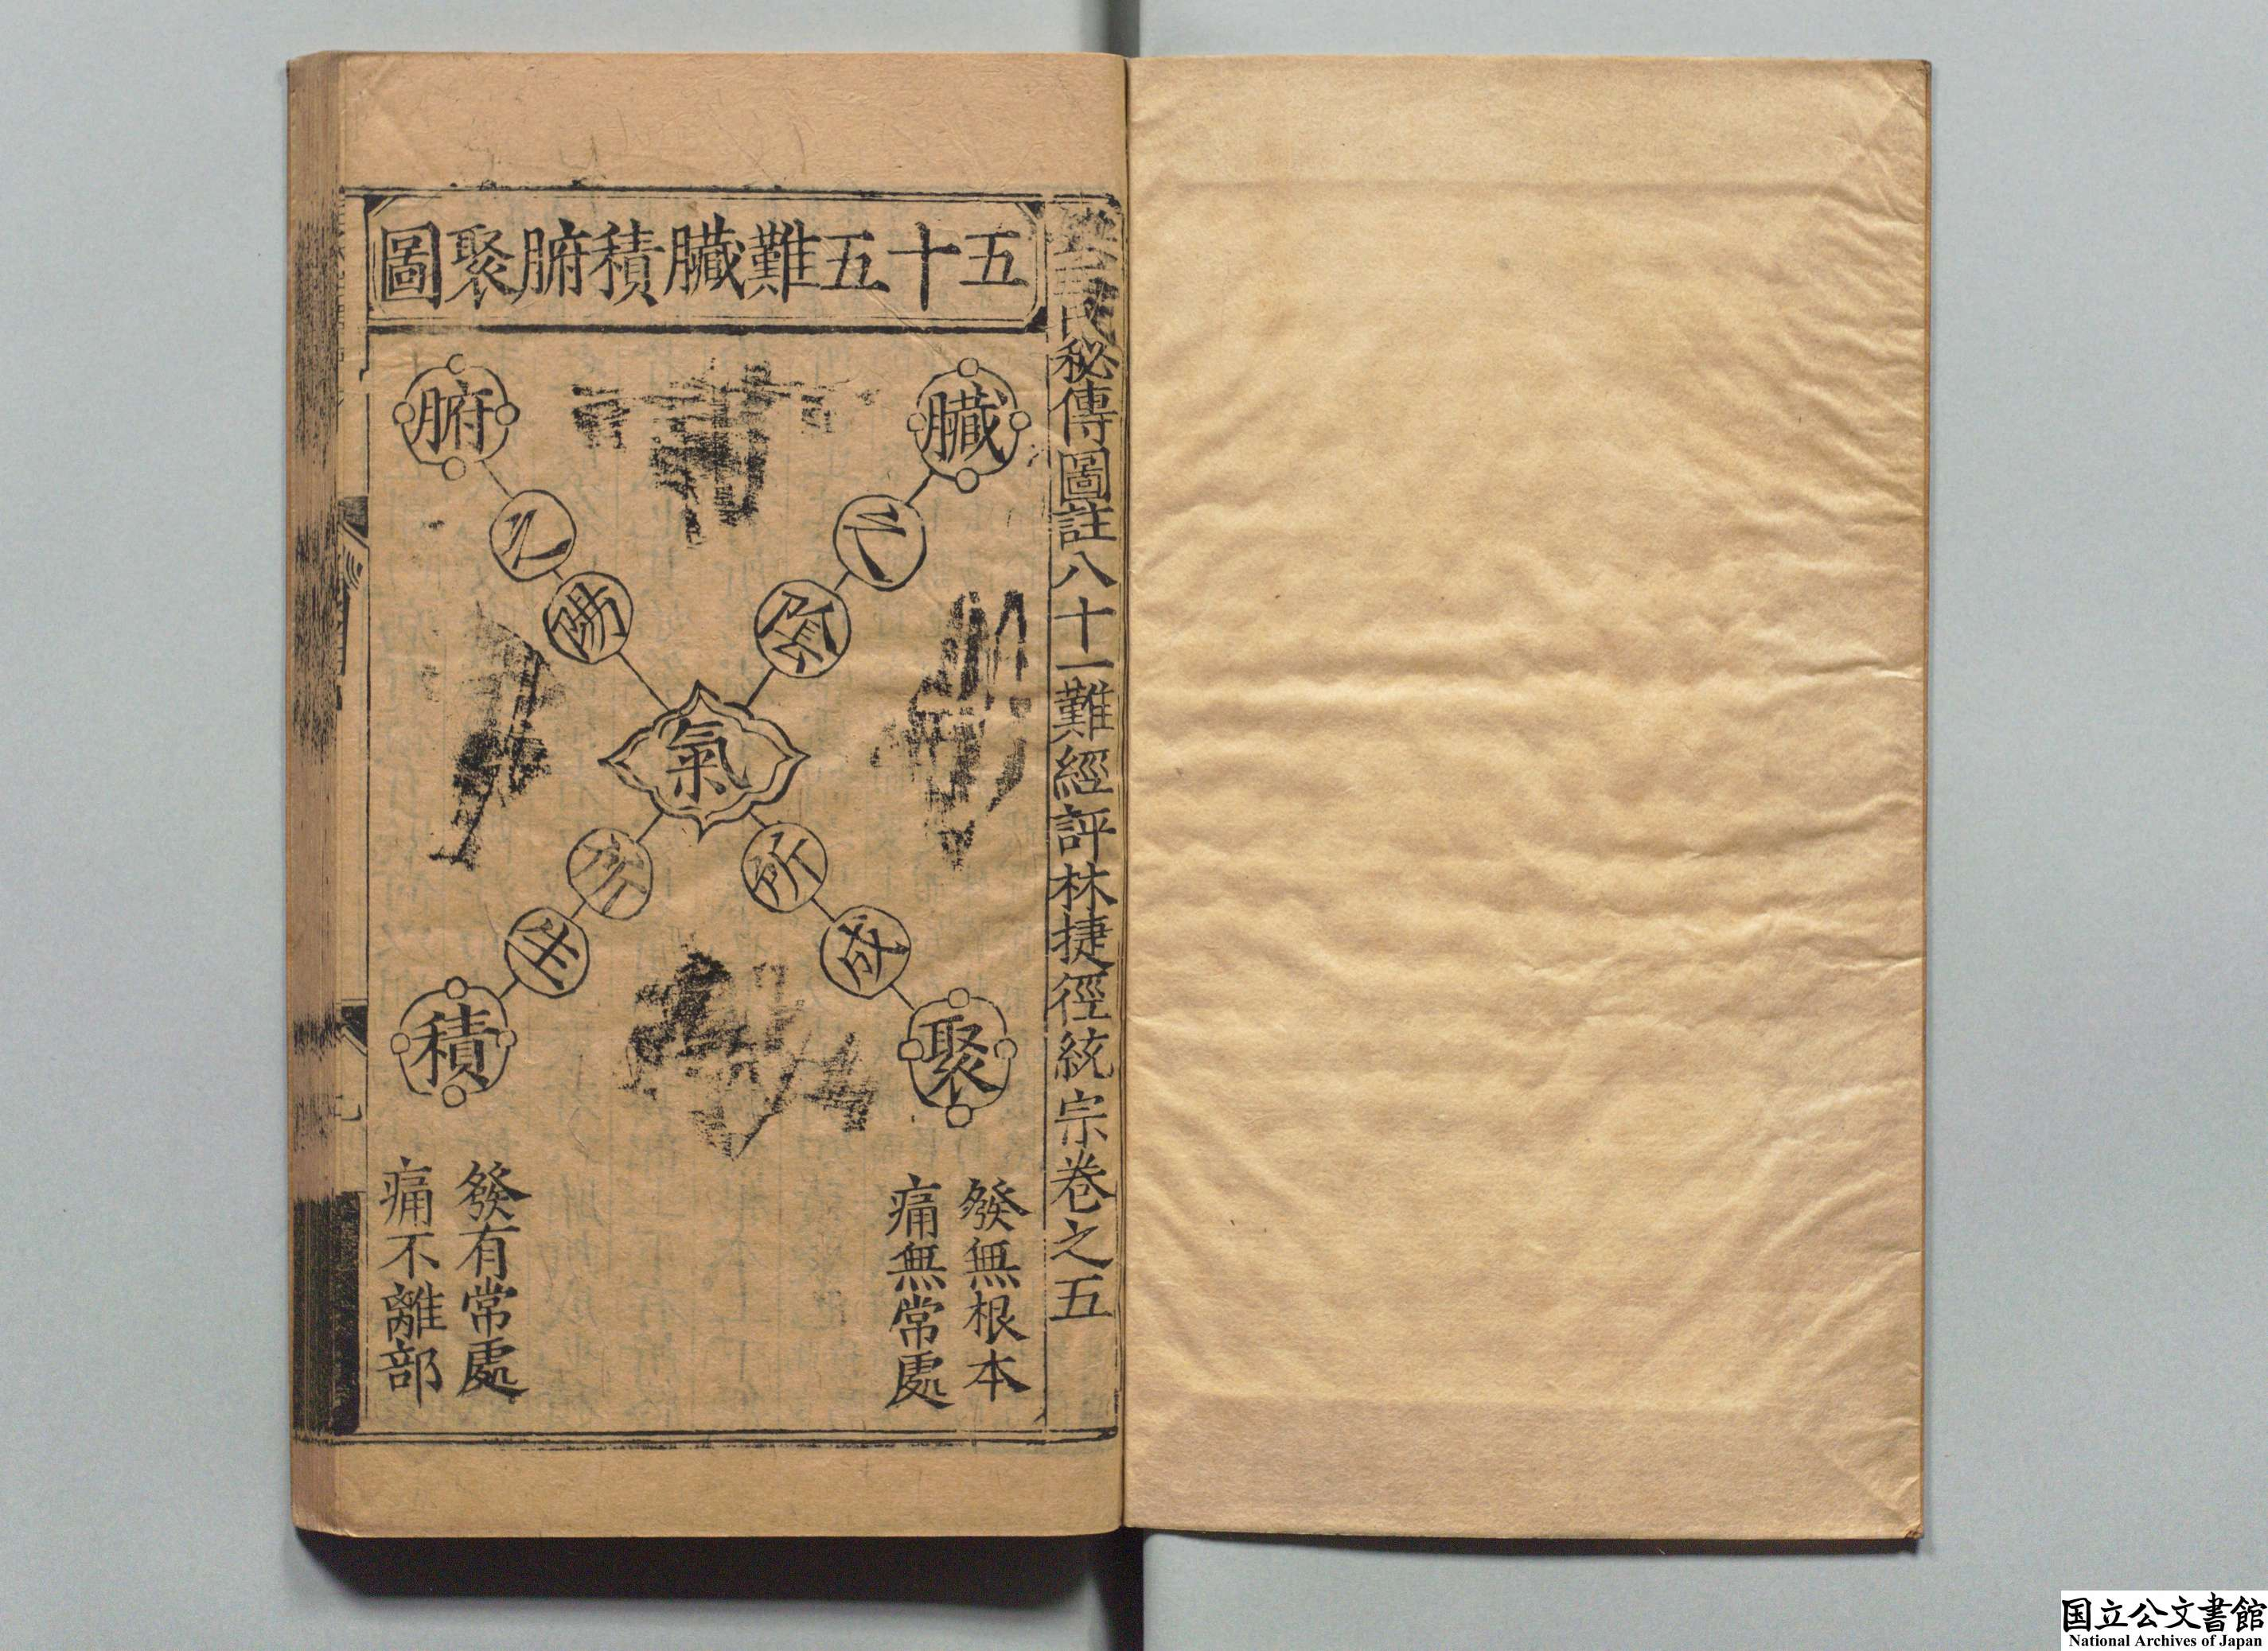 秘傳圖註八十一難經評林捷徑統宗卷之五
五十五難臟積腑聚圖
臟之隂
氣
所生積
腑之陽
所成聚
發無根本
痛無常處
發有常處
痛不離部
国立公文書館
National Archives of Japan